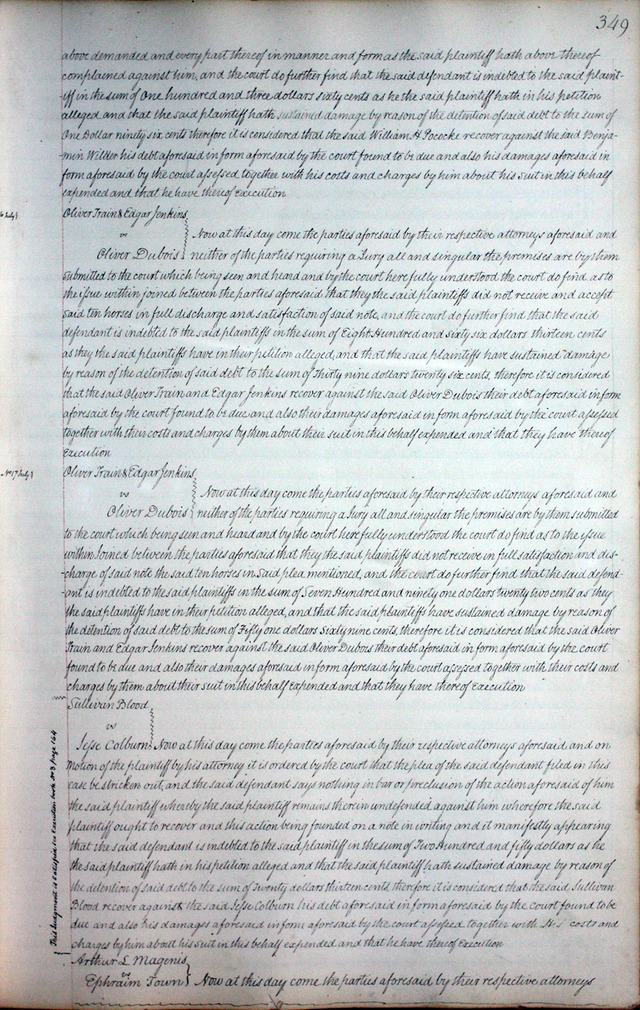 349
above demanded and every part thereof in manner and form as the said plaintiff hath above thereof
complained against him, and the court do further find that the said defendant is indebted to the said plaint-
iff in the sum of One hundred and three dollars sixty cents as he the said plaintiff hath in his petition
alleged and that the said plaintiff hath sustained damage by reason of the detention of said debt to the sum of
One Dollar ninety six cents therefore it is considered that the said William H Pococke recover against the said Benja-
min Wilder his debt aforesaid in form aforesaid by the court found to be due and also his damages aforesaid in
form aforesaid by the court assessed together with his costs and charges by him about his suit in this behalf
expended and that he have thereof execution
Oliver Train & Edgar Jenkins
vs
Now at this day come the parties aforesaid by their respective attorneys aforesaid and
Oliver Dubois neither of the parties requiring a Jury all and singular the premises are by them
submitted to the court which being seen and heard and by the court here fully understood the court do find as to
the issue within joined between the parties aforesaid that they the said plaintiffs did not receive and accept
said ten horses in full discharge and satisfaction of said note, and the court do further find that the said
defendant is indebted to the said plaintiffs in the sum of Eight Hundred and sixty six dollars thirteen cents
as they the said plaintiffs have in their petition alleged, and that the said plaintiffs have sustained damage
by reason of the detention of said debt to the sum of Thirty nine dollars twenty six cents, therefore it is considered
that the said Oliver Train and Edgar Jenkins recover against the said Oliver Dubois their debt aforesaid in form
aforesaid by the court found to be due and also their damages aforesaid in form aforesaid by the court assessed
together with their costs and charges by them about their suit in this behalf expended and that they have thereof
Execution
No 17 July
Oliver Train & Edgar Jenkins
vs
Now at this day come the parties aforesaid by their respective attorneys aforesaid and
Oliver Dubois neither of the parties requiring a Jury all and singular the premises are by them submitted
to the court which being seen and heard and by the court here fully understood the court do find as to the issue
within Joined between the parties aforesaid that they the said plaintiffs did not receive in full satisfaction and dis-
charge of said note the said ten horses in Said plea mentioned, and the court do further find that the said defend-
ant is indebted to the said plaintiffs in the sum of Seven Hundred and ninety one dollars twenty two cents as they
the said plaintiffs have in their petition alleged, and that the said plaintiffs have sustained damage by reason of
the detention of said debt to the sum of Fifty one dollars Sixty nine cents, therefore it is considered that the said Oliver
Train and Edgar Jenkins recover against the said Oliver Dubois their debt aforesaid in form aforesaid by the court
found to be due and also their damages aforesaid in form aforesaid by the court assessed together with their costs and
charges by them about their suit in this behalf Expended and that they have thereof Execution
Sullivan Blood
vs
Jesse Colburn Now at this day come the parties aforesaid by their respective attorneys aforesaid and on
motion of the plaintiff by his attorney it is ordered by the court that the plea of the said defendant filed in this
case be stricken out, and the said defendant says nothing in bar or preclusion of the action aforesaid of him
the said plaintiff whereby the said plaintiff remains therein undefended against him wherefore the said
plaintiff ought to recover and this action being founded on a note in writing and it manifestly appearing
that the said defendant is indebted to the said plaintiff in the sum of Two Hundred and fifty dollars as he
the said plaintiff hath in his petition alleged and that the said plaintiff hath sustained damage by reason of
the detention of said debt to the sum of Twenty dollars thirteen cents, therefore it is considered that the said Sullivan
Blood recover against the said Jesse Colburn his debt aforesaid in form aforesaid by the court found to be
due and also his damages aforesaid in form aforesaid by the court assessed together with his costs and
charges by him about his suit in this behalf expended and that he have thereof Execution
This Judgment is satisfied in Execution book No 3 page 164
Arthur L Magenis
vs
Ephraim Town Now at this day come the parties aforesaid by their respective attorneys